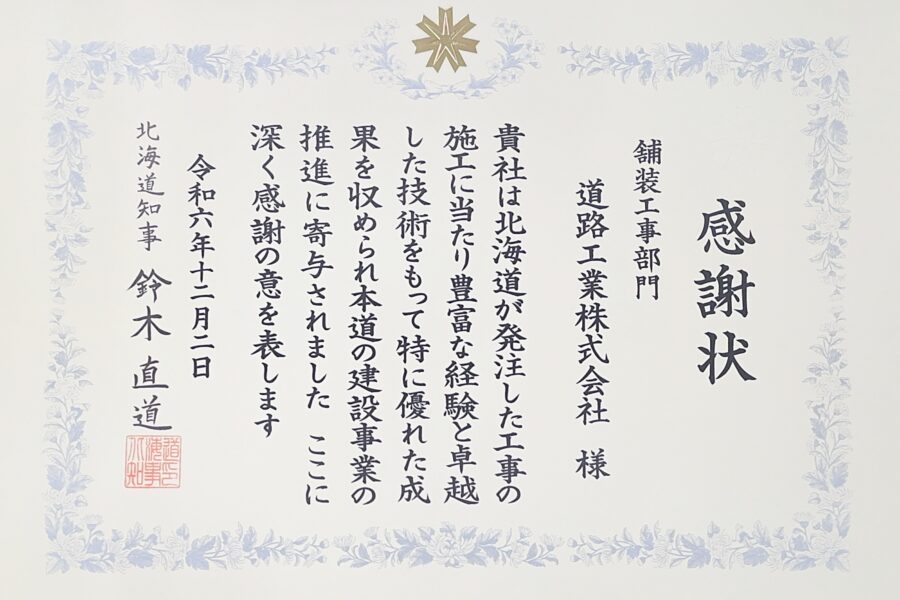 感謝状
舗装工事部門
道路工業株式会社 様
貴社は北海道が発注した工事の
施工に当たり豊富な経験と卓越
した技術をもって特に優れた成
果を収められ本道の建設事業の
推進に寄与されました ここに
深く感謝の意を表します
令和六年十二月二日
北海道知事 鈴木直道